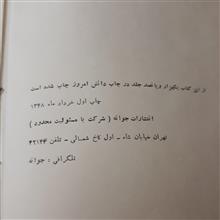 از این کتاب یکهزار و پانصد جلد در چاپ دانش امروز چاپ شده است
چاپ اول خرداد ماه ۱۳۴۸
انتشارات جوانه ( شرکت با مسئولیت محدود )
تهران خیابان شاه - اول کاخ شمالی - تلفن ۴۲۱۴۴
تلگرافی : جوانه